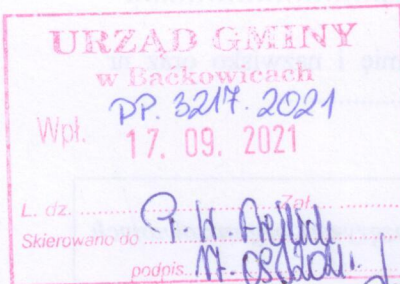 URZĄD GMINY
w Baćkowicach
DP. 3217. 2021
Wpł. 17. 09. 2021
L. dz. Zał.
Skierowano do P. K.
podpis